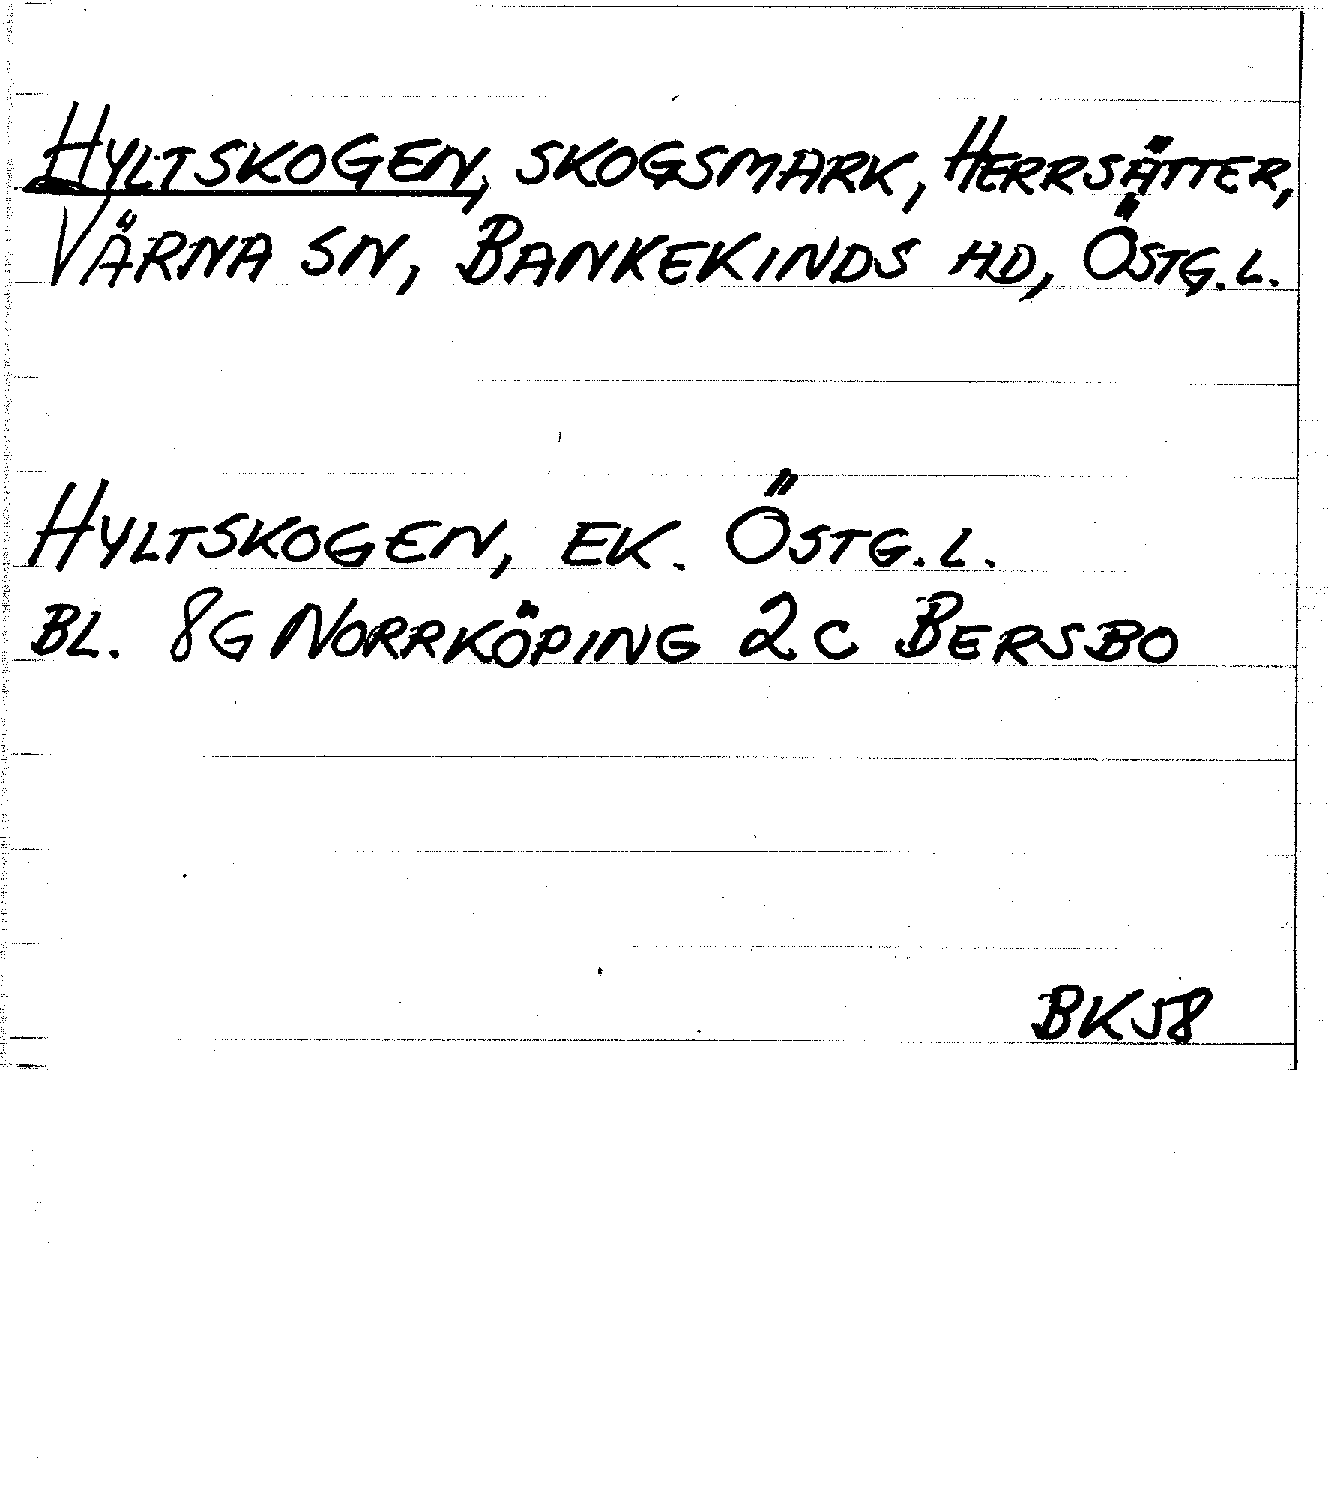 HYLTSKOGEN, SKOGSMARK, HERRSÄTTER,
VÄRNA SN, BANKEKINDS HD, ÖSTG.L.
HYLTSKOGEN, EK. ÖSTG.L.
BL. 8G NORRKÖPING 2C BERSBO
BK58